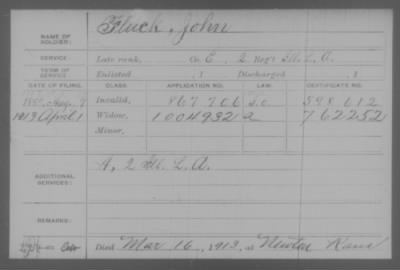 NAME OF SOLDIER: Fluck, John
SERVICE: Late rank, Co. E, 2 Reg't Ill. L. A.
TERM OF SERVICE: Enlisted , 1 Discharged , 1
DATE OF FILING. CLASS. APPLICATION NO. LAW. CERTIFICATE NO.
Aug. 7 Invalid, 867706 598612
1913 April 1 Widow, 1004932 762252
Minor,
ADDITIONAL SERVICES: A, 2 Ill. L. A.
REMARKS:
Died Mar 16, 1913, at Newton Kans